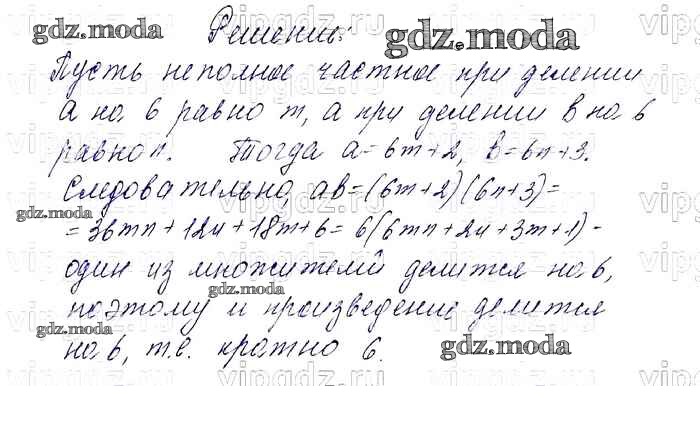 Решение:
Пусть неполное частное при делении
a на 6 равно m, а при делении b на 6
равно n. Тогда a=6m+2, b=6n+3.
Следовательно, ab=(6m+2)(6n+3)=
=36mn+12n+18m+6=6(6mn+2n+3m+1)-
один из множителей делится на 6,
поэтому и произведение делится
на 6, т.е. кратно 6.
gdz.moda
gdz.moda
gdz.moda
gdz.moda
gdz.moda
gdz.moda
vipgdz.ru